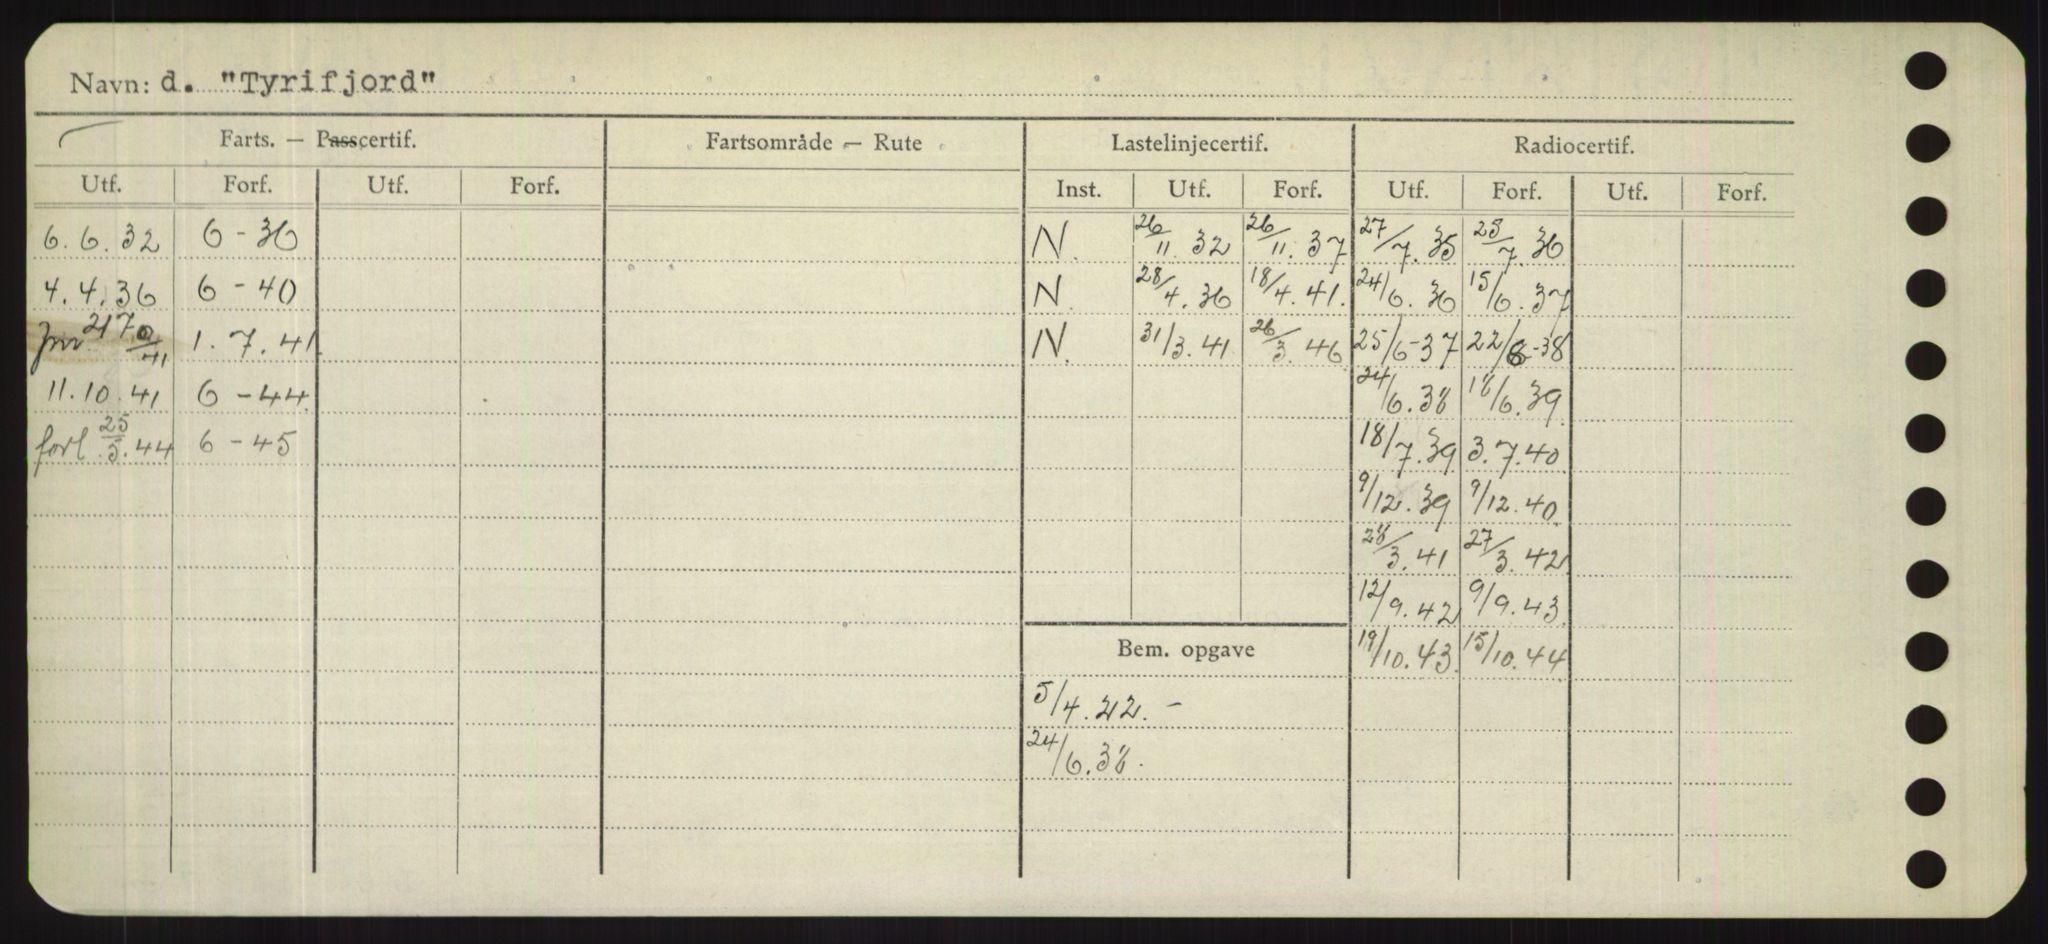 Navn: d. "Tyrifjord"
Farts. — Passcertif. Fartsområde — Rute Lastelinjecertif. Radiocertif.
Utf. Forf. Utf. Forf. Inst. Utf. Forf. Utf. Forf. Utf. Forf.
6.6.32 6-36 N. 26/11.32 26/11.37 27/7.35 25/7.36
4.4.36 6-40 N. 28/4.36 18/4.41. 24/6.36 15/6.37
1.7.41. N. 31/3.41 26/3.46 25/6-37 22/6-38
11.10.41 6-44 24/6.38 18/6.39
forl. 25/5.44 6-45 18/7.39 3.7.40
9/12.39 9/12.40
28/3.41 27/3.42
12/9.42 9/9.43
Bem. opgave 19/10.43 15/10.44
5/4.22.-
24/6.38.